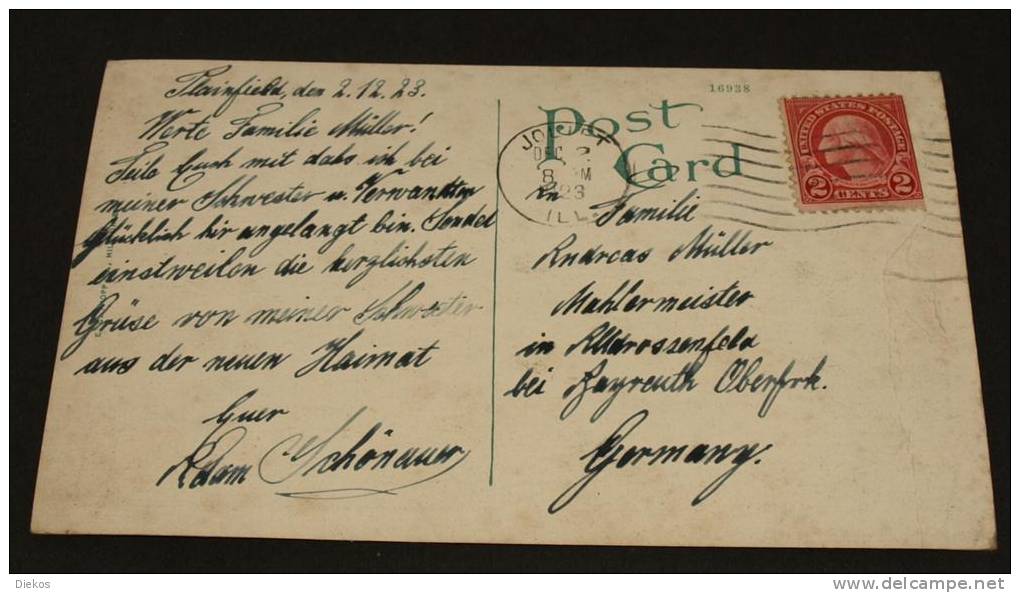 Plainfield, den 2.12.23.
Werte Familie Müller!
Teile Euch mit dahs ich bei
meiner Schwester u. Verwandten
Glücklich hir angelangt bin. Sendet
einstweilen die herzlichsten
Grüse von meiner Schwester
aus der neuen Haimat
Euer
Adam Schönauer
16938
Post
Card
JOLIET
DEC 2
8 M
23
ILL.
UNITED STATES POSTAGE
2 CENTS 2
An
Familie
Andreas Müller
Mahlermeister
in Altdrossenfeld
bei Bayreuth Oberfrk.
Germany.
Diekos
www.delcampe.net